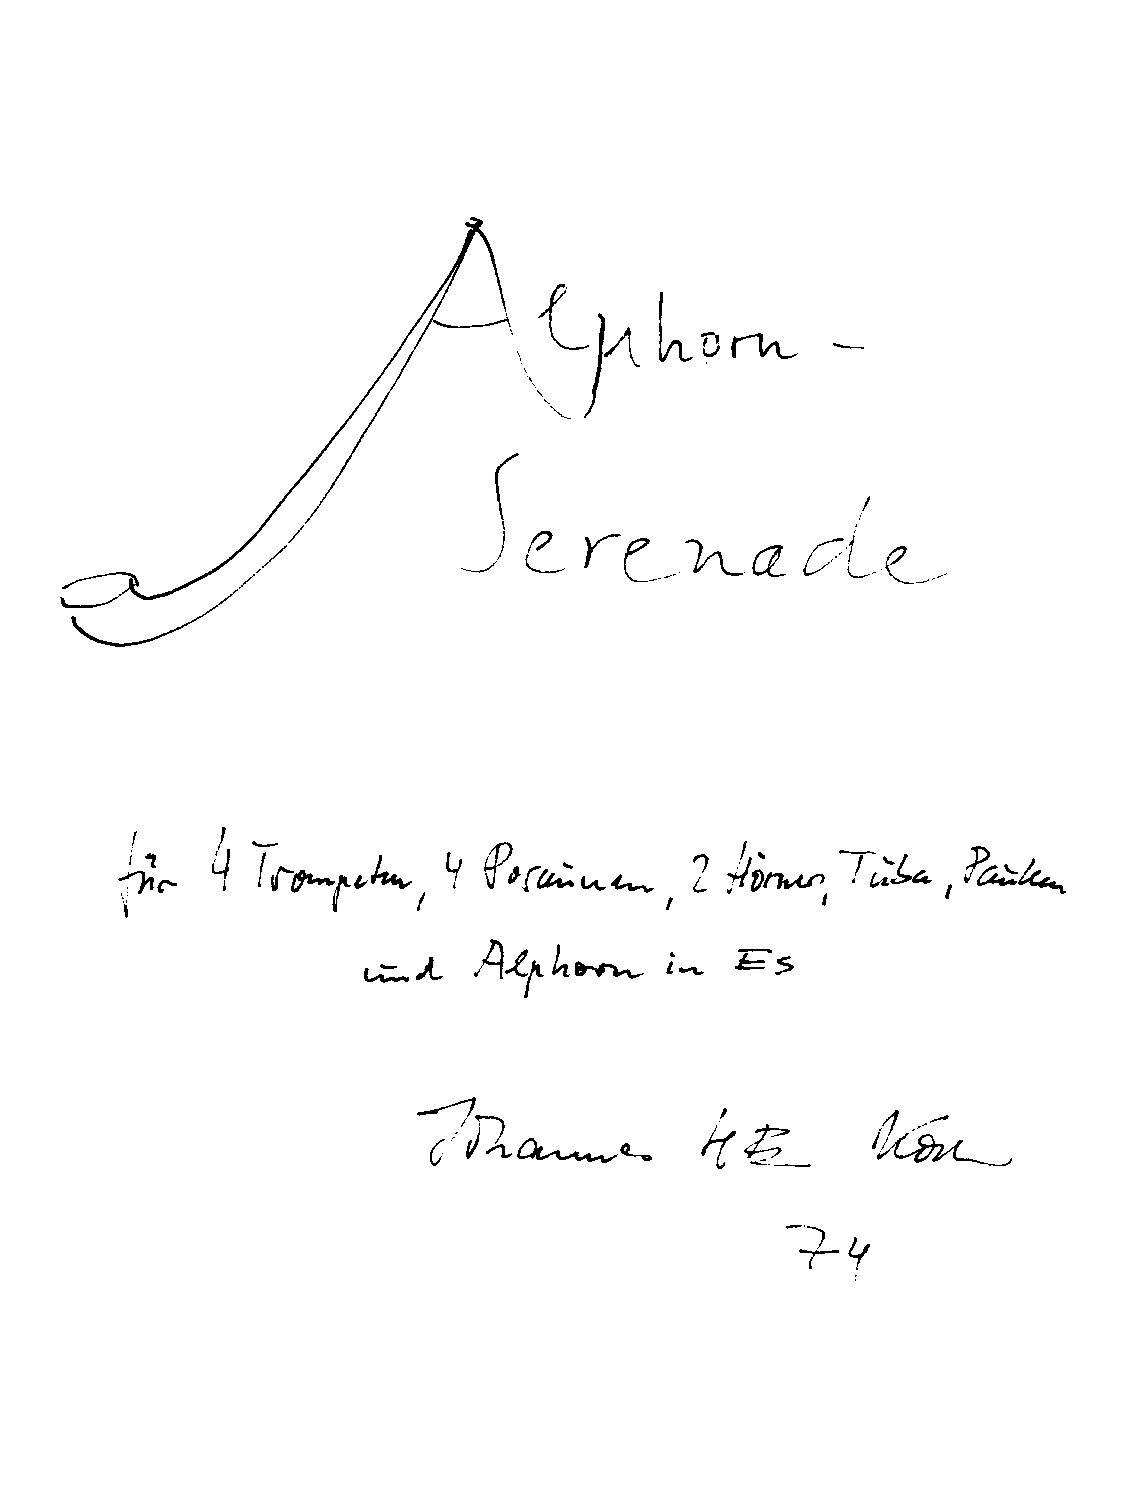 Alphorn-
Serenade
für 4 Trompeten, 4 Posaunen, 2 Hörner, Tuba, Pauken
und Alphorn in Es
Johannes H E Koch
74